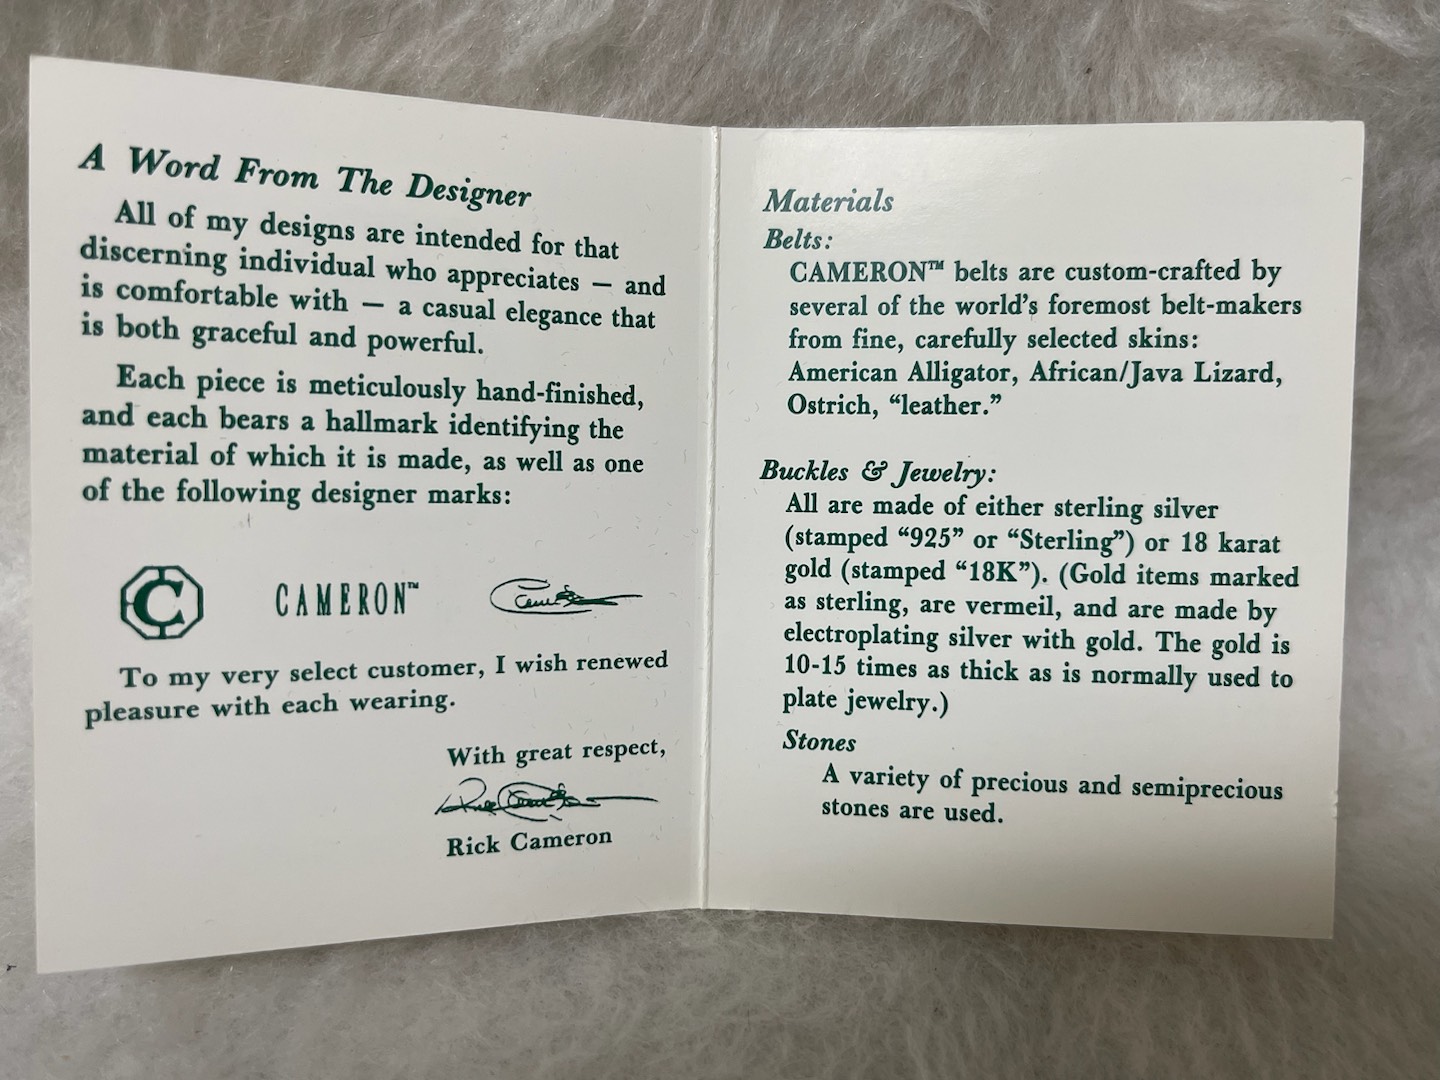 A Word From The Designer
All of my designs are intended for that
discerning individual who appreciates — and
is comfortable with — a casual elegance that
is both graceful and powerful.
Each piece is meticulously hand-finished,
and each bears a hallmark identifying the
material of which it is made, as well as one
of the following designer marks:
C CAMERON™
To my very select customer, I wish renewed
pleasure with each wearing.
With great respect,
Rick Cameron
Materials
Belts:
CAMERON™ belts are custom-crafted by
several of the world's foremost belt-makers
from fine, carefully selected skins:
American Alligator, African/Java Lizard,
Ostrich, “leather.”
Buckles & Jewelry:
All are made of either sterling silver
(stamped “925” or “Sterling”) or 18 karat
gold (stamped “18K”). (Gold items marked
as sterling, are vermeil, and are made by
electroplating silver with gold. The gold is
10-15 times as thick as is normally used to
plate jewelry.)
Stones
A variety of precious and semiprecious
stones are used.